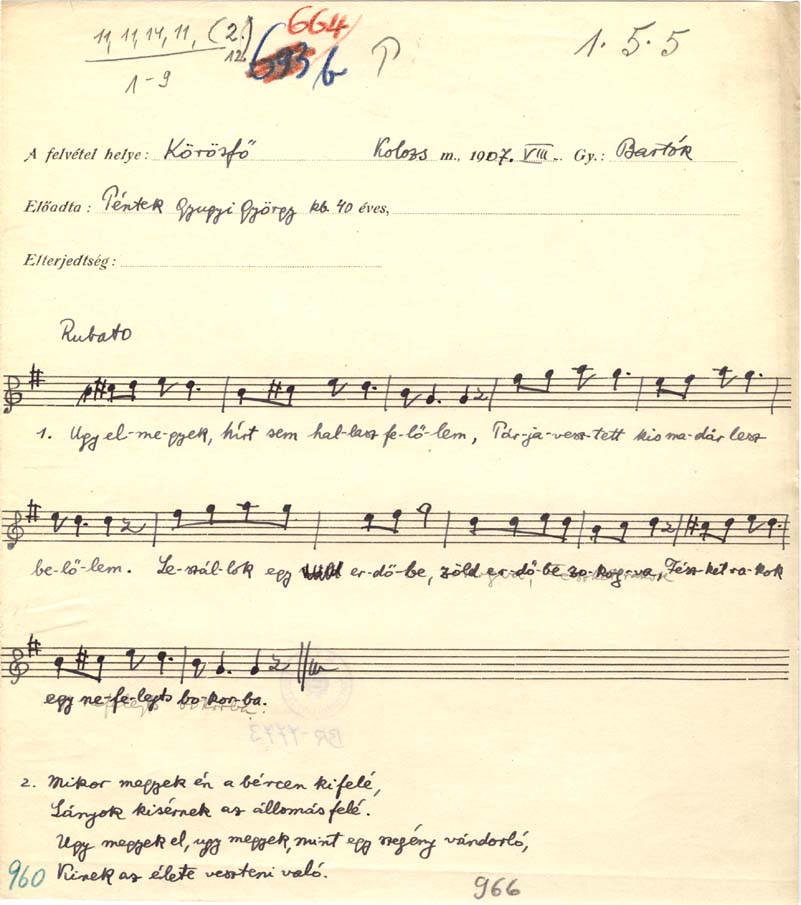 11, 11, 14, 11, (2.)
12.
1-9
664
693 b
1. 5. 5
A felvétel helye: Körösfő Kolozs m., 1907. VIII. Gy.: Bartók
Előadta: Péntek Gyugyi György kb. 40 éves,
Elterjedtség:
Rubato
1. Ugy el-me-gyek, hírt sem hal-lasz fe-lő-lem, Pár-ja-vesz-tett kis ma-dár lesz
be-lő-lem. Le-szál-lok egy er-dő-be, zöld er-dő-be zo-kog-va, Fész-ket ra-kok
egy ne-fe-lejts bo-kor-ba.
2. Mikor megyek én a bércen kifelé,
Lányok kisérnek az állomás felé.
Ugy megyek el, ugy megyek, mint egy szegény vándorló,
Kinek az élete veszteni való.
960
966